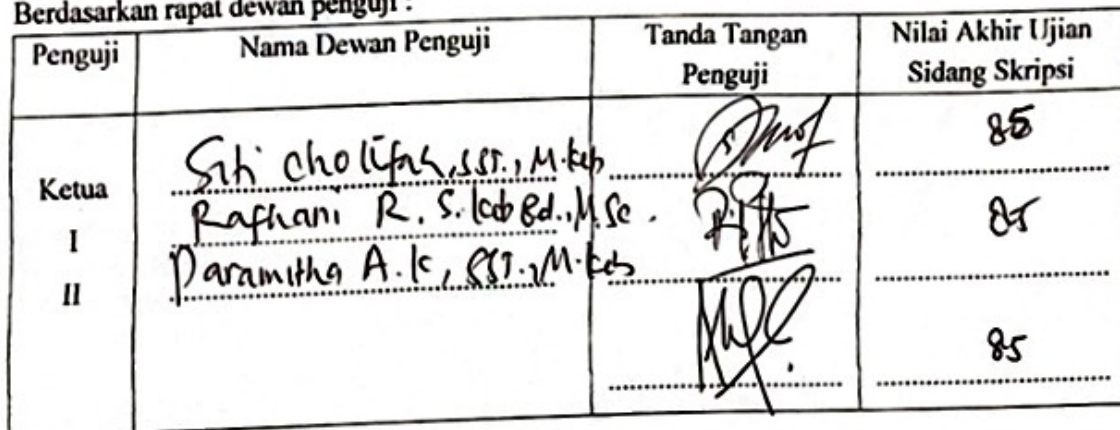 Berdasarkan rapat dewan penguji :
Penguji Nama Dewan Penguji Tanda Tangan Penguji Nilai Akhir Ujian Sidang Skripsi
Ketua Siti Cholifah, SST., M.Keb 85
I Rafhani R. S.KebBd., M.Sc. 85
II Paramitha A.K, SST., M.Keb 85